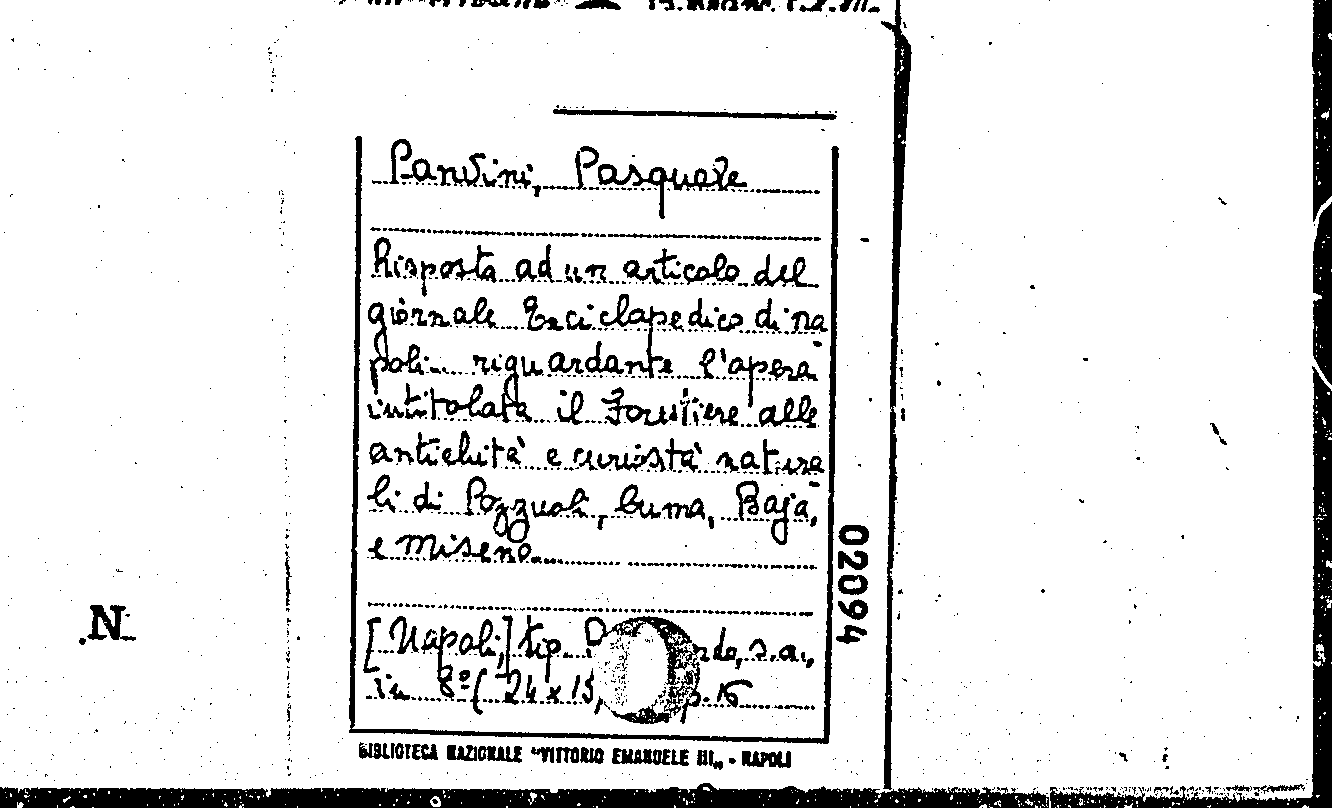 Panvini, Pasquale
Risposta ad un articolo del
giornale Enciclopedico di na
poli.. riguardante l'opera
intitolata il Forestiere alle
antichità e curiosità natura
li di Pozzuoli, Cuma, Baja,
e Miseno...
[Napoli,] tip. s.a.,
in 8º( 24 x 15, p.16
BIBLIOTECA NAZIONALE "VITTORIO EMANUELE III„ - NAPOLI
02094
.N.